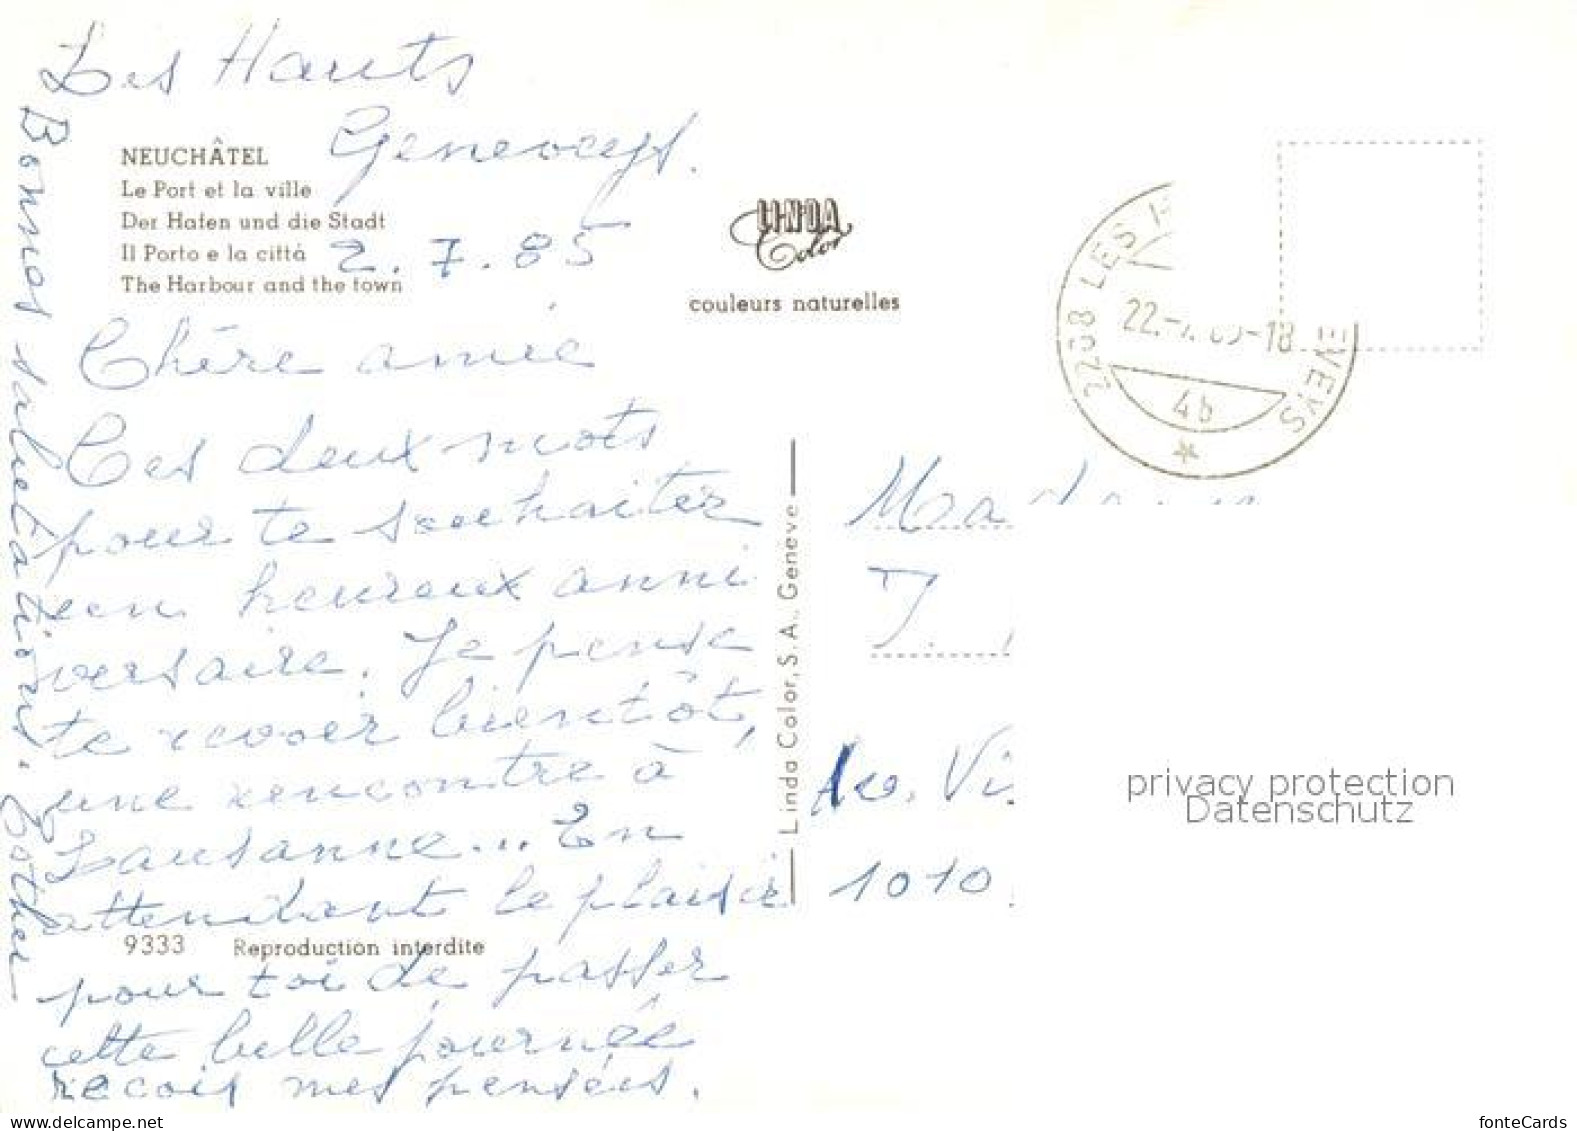 Les Hauts
Geneveys.
2.7.85
NEUCHÂTEL
Le Port et la ville
Der Hafen und die Stadt
Il Porto e la città
The Harbour and the town
LINDA
Color
couleurs naturelles
Chère amie
Ces deux mots
pour te souhaiter
un heureux anni
versaire. Je pense
te revoir bientôt,
une rencontre à
Lausanne... En
attendant le plaisir
pour toi de passer
cette belle journée
recois mes pensées.
Bonnes salutations. Esther
9333 Reproduction interdite
Linda Color, S.A., Geneve
2208 LES H
EVEYS
22.-7. 85-18
4b
Mad
J.
Av. Vi
1010
privacy protection
Datenschutz
www.delcampe.net
fonteCards